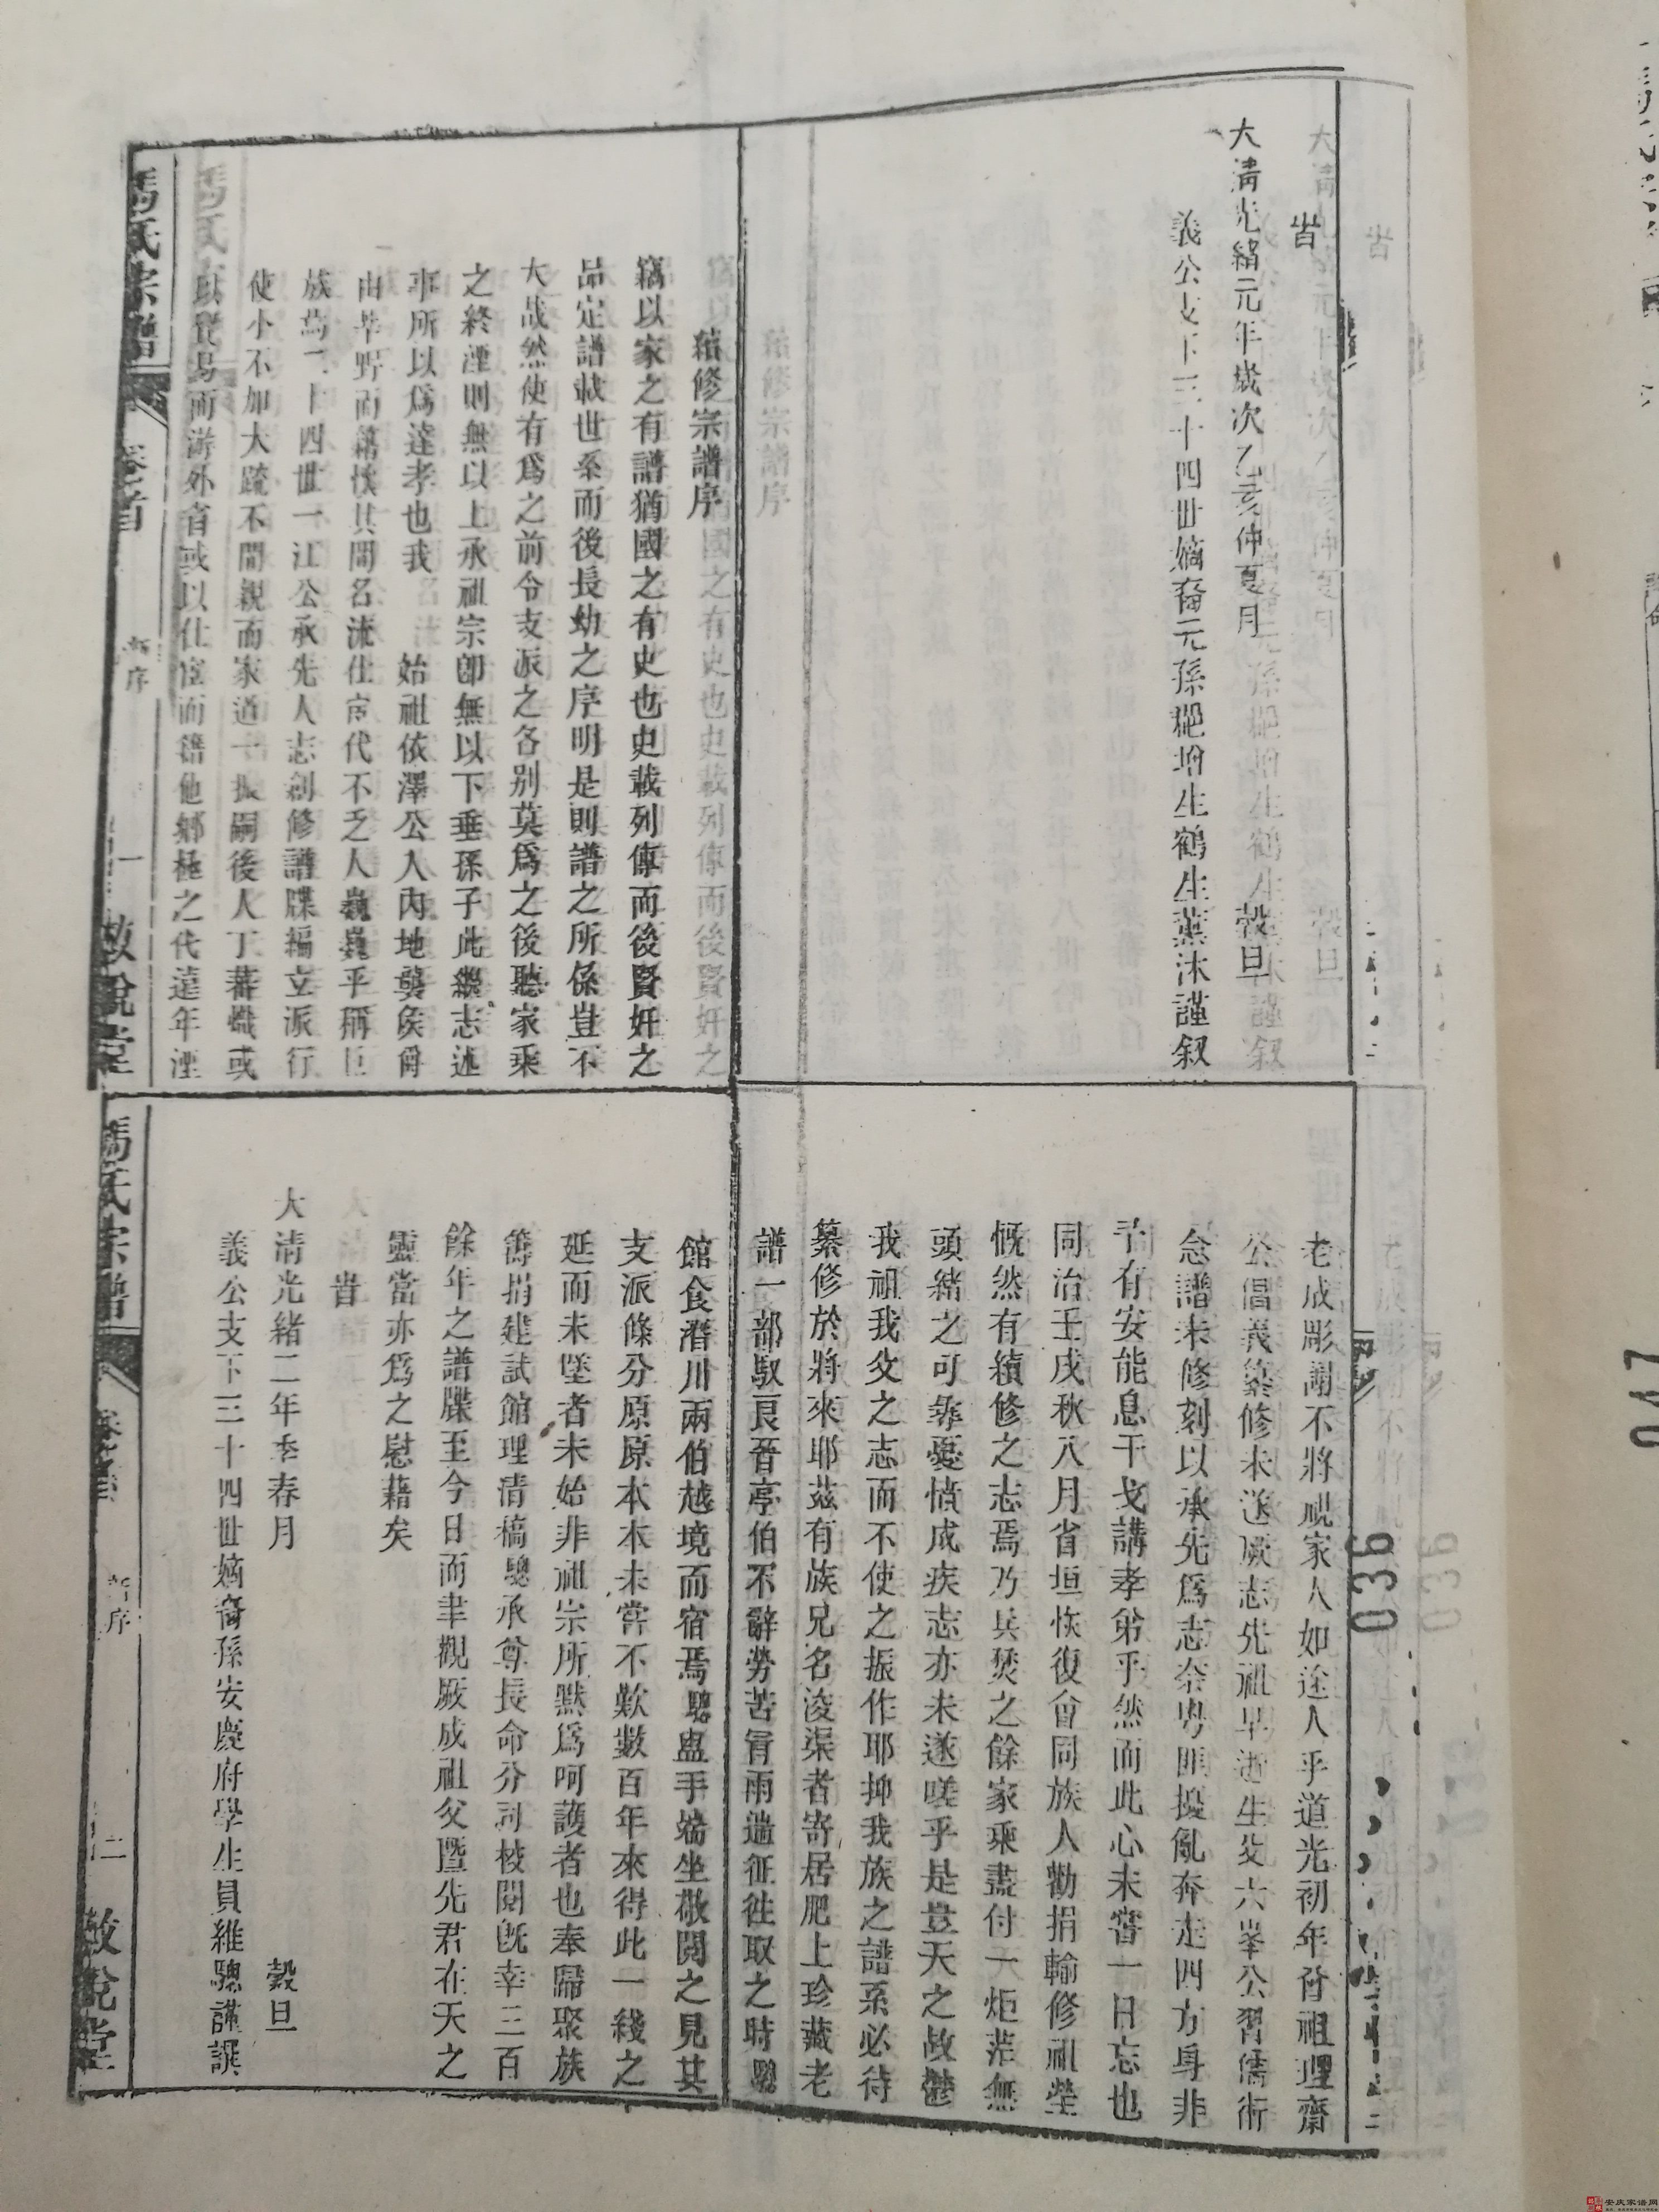 旹
大淸光緒元年歲次乙亥仲夏月 穀旦
義公支下三十四世嫡裔元孫郡增生鶴生薰沐謹叙
續修宗譜序
竊以家之有譜猶國之有史也史載列傳而後賢奸之
品定譜載世系而後長幼之序明是則譜之所係豈不
大哉然使有爲之前令支派之各別莫爲之後聽家乘
之終湮則無以上承祖宗卽無以下垂孫子此繼志述
事所以爲達孝也我 始祖依澤公入內地襲侯爵
由莘野而籍 其間名流仕宦代不乏人巍巍乎稱巨
族焉二十四世一江公承先人志創修譜牒編立派行
使小不加大疏不間親而家道一振嗣後人丁蕃熾或
以貿易而游外省或以仕宦而籍他鄉極之代遠年湮
馮氏宗譜
卷之首
新序
一
敬說堂
老成彫謝不將視家人如途人乎道光初年曾祖理齋
公倡義纂修未遂厥志先祖早逝生父六峯公習儒術
念譜未修刻以承先爲志奈粤匪擾亂奔走四方身非
孑有安能息干戈講孝弟乎然而此心未嘗一日忘也
同治壬戌秋八月省垣恢復會同族人勸捐輸修祖塋
慨然有續修之志焉乃兵燹之餘家乘盡付一炬茫無
頭緒之可尋憂憤成疾志亦未遂嗟乎是豈天之故鬱
我祖我父之志而不使之振作耶抑我族之譜系必待
纂修於將來耶茲有族兄名淩渠者寄居肥上珍藏老
譜一部馭艮晉亭伯不辭勞苦冒雨遄征往取之時驄
館食潛川兩伯越境而宿焉驄盥手端坐敬閱之見其
支派條分原原本本未嘗不歎數百年來得此一綫之
延而未墜者未始非祖宗所默爲呵護者也奉歸聚族
籌捐建試館理清稿驄承尊長命分司校閱旣幸三百
餘年之譜牒至今日而聿觀厥成祖父曁先君在天之
靈當亦爲之慰藉矣
旹
大清光緒二年季春月 穀旦
義公支下三十四世嫡裔孫安慶府學生員維驄謹譔
馮氏宗譜
卷之首
新序
二
敬說堂
036
安庆家谱网